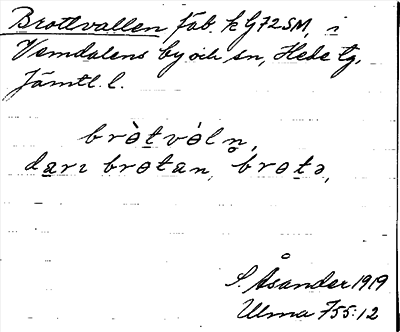 Brottvallen fäb. k G72SM, i
Vemdalens by och sn, Hede tg,
Jämtl. l.
bròt̲vòln̥,
da̲rı brotan, brot̲ə,
S. Åsander 1919
Ulma 755:12